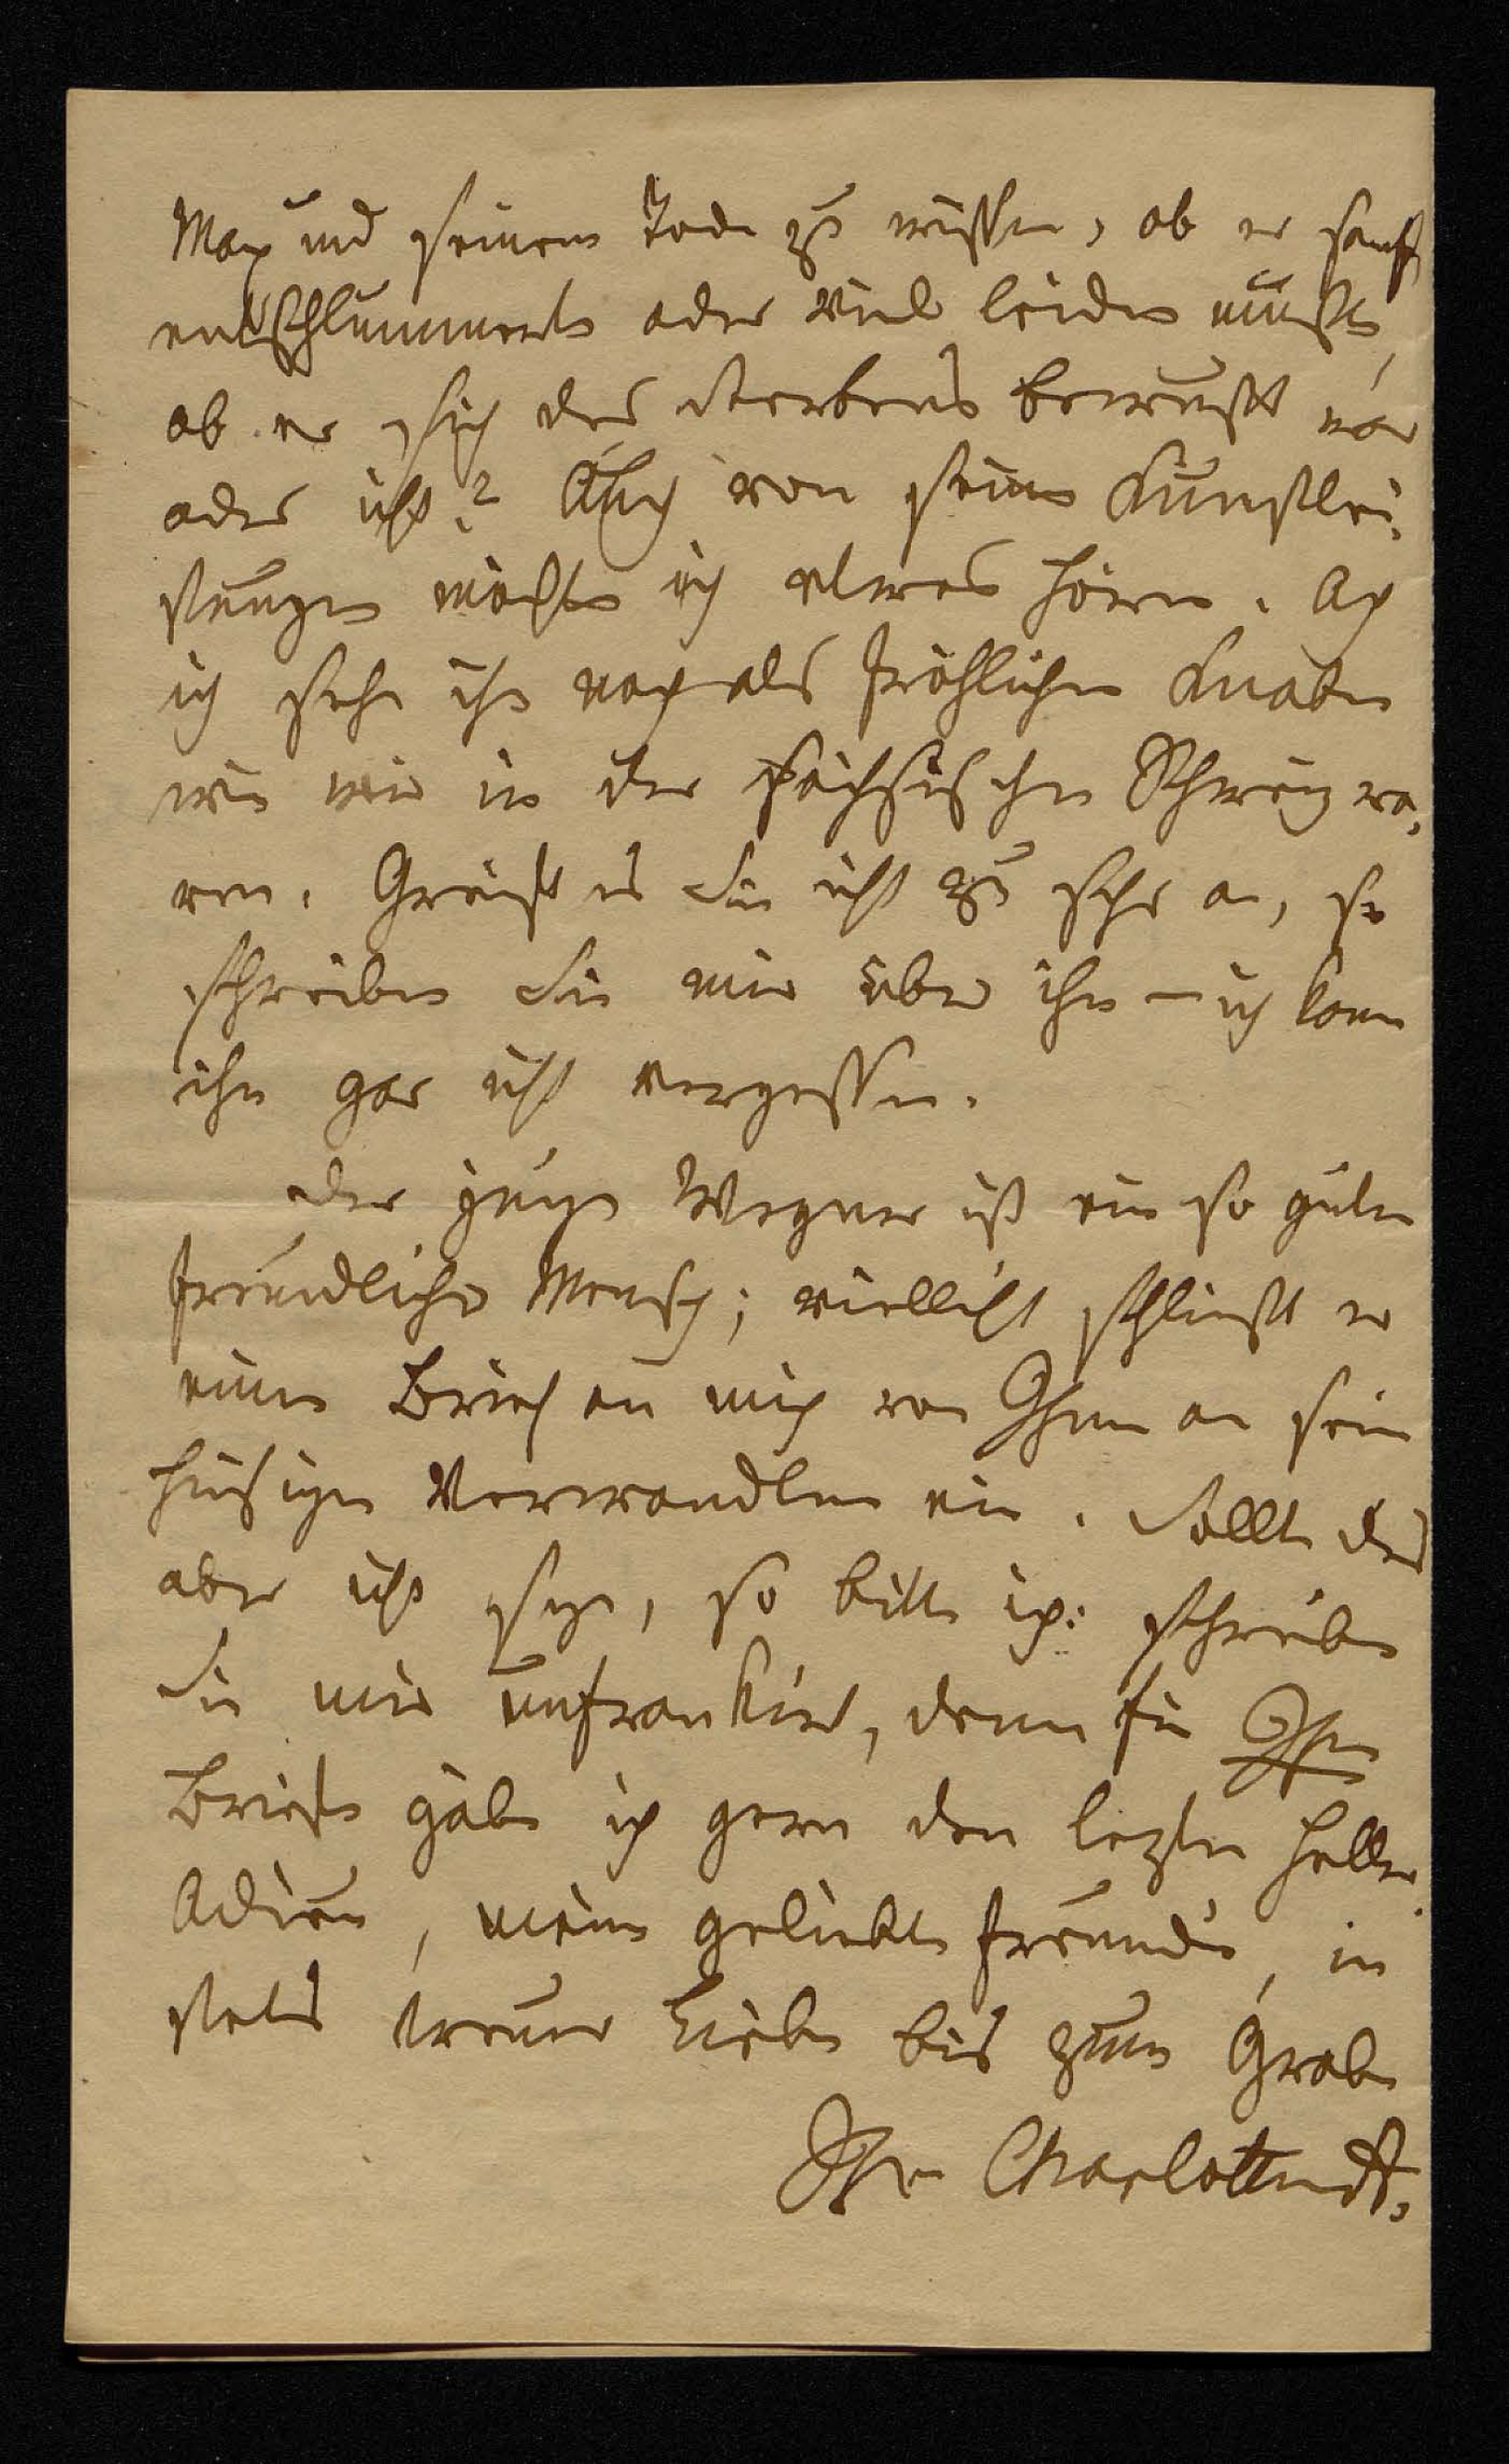 Max und seinem Tode zu wissen, ob er sanft
entschlummerte oder viel leiden mußte,
ob er sich des Sterbens bewußt war
oder nicht? Auch von seinen Kunstlei-
stungen möchte ich etwas hören. Ach
ich sehe ihn noch als fröhlichen Knaben
wie wir in der sächsischen Schweiz wa-
ren. Greift es Sie nicht zu sehr an, so
schreiben Sie mir über ihn – ich kann
ihn gar nicht vergessen.
Der junge Wegner ist ein so guter
freundlicher Mensch; vielleicht schließt er
einen Brief an mich von Ihnen an seine
hiesigen Verwandten ein. Sollte das
aber nicht seyn, so bitte ich: schreiben
Sie mir unfrankirt, denn für Ihre
Briefe gäbe ich gern den lezten Heller.
Adieu, meine geliebte Freundin, in
stets treuer Liebe bis zum Grabe
Ihre Charlotte